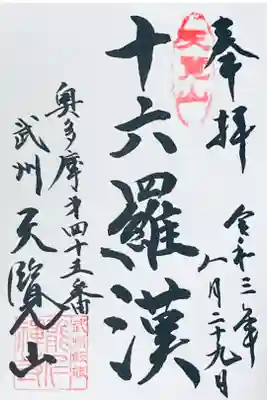 奉拝
令和三年
八月二十九日
天覽山
十六羅漢
奥多摩㐧四十五番
武州 天覽山
武州飯能